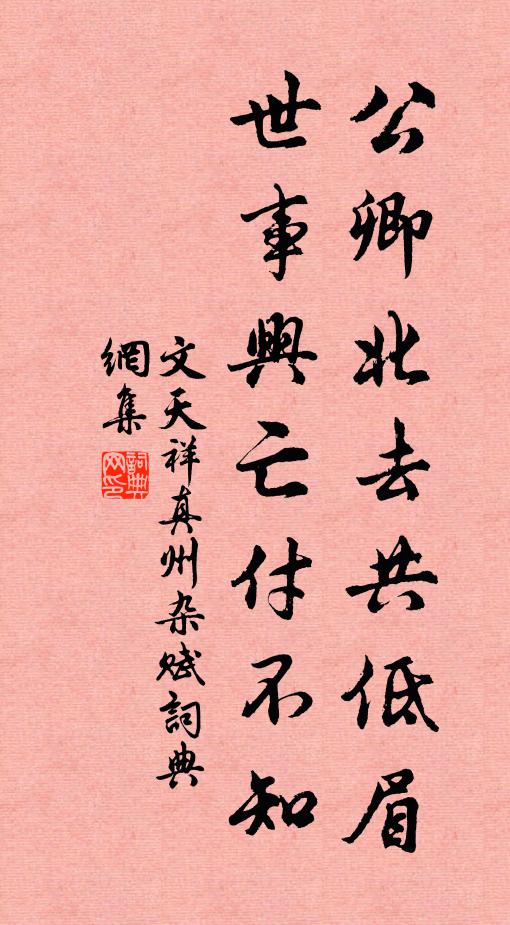 公卿北去共低眉
世事興亡付不知
文天祥真州杂赋詞典
網集
詞典网印